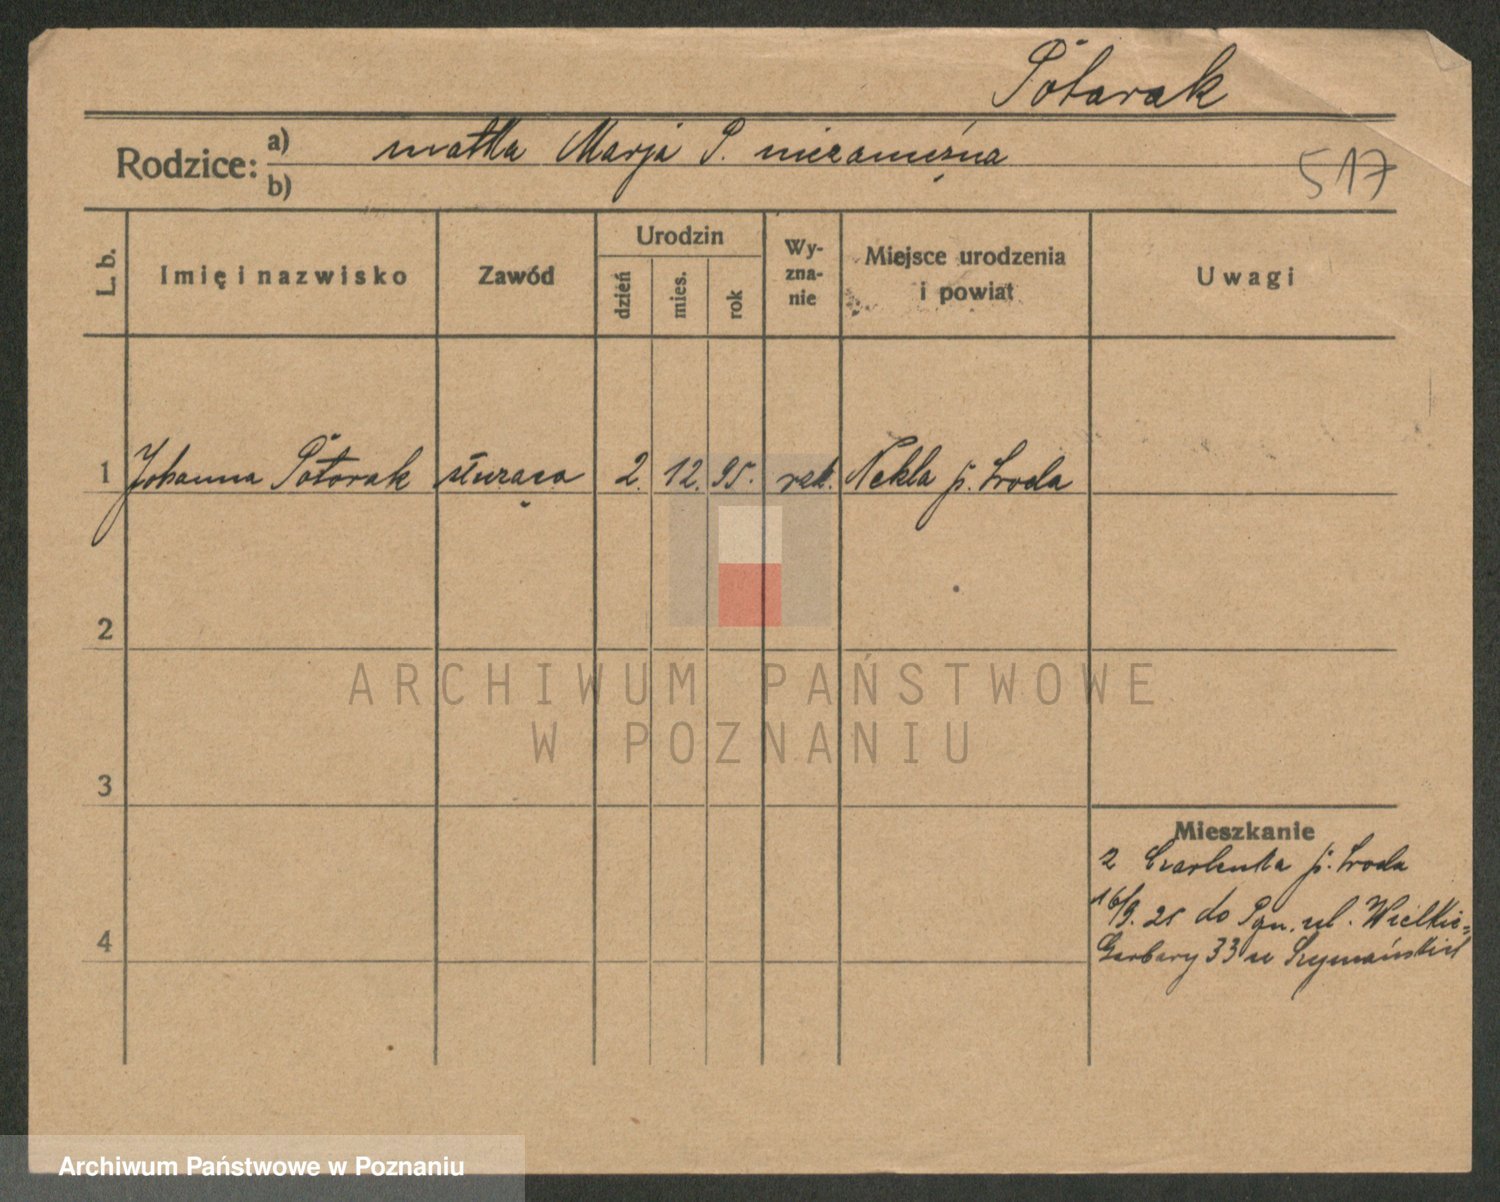 Pótarak
Rodzice: a) matka Marja P. niezamężna
b)
517
L. b.
Imię i nazwisko
Zawód
Urodzin
dzień
mies.
rok
Wy-
zna-
nie
Miejsce urodzenia
i powiat
Uwagi
1 Johanna Pótorak służąca 2. 12. 95. rzk. Nekla p. Środa
2
3
4
Mieszkanie
z Czarlenka p. Środa
16/9. 25 do Pzn. ul. Wielkie-
Garbary 33 u Szymańskich
ARCHIWUM PAŃSTWOWE
W POZNANIU
Archiwum Państwowe w Poznaniu